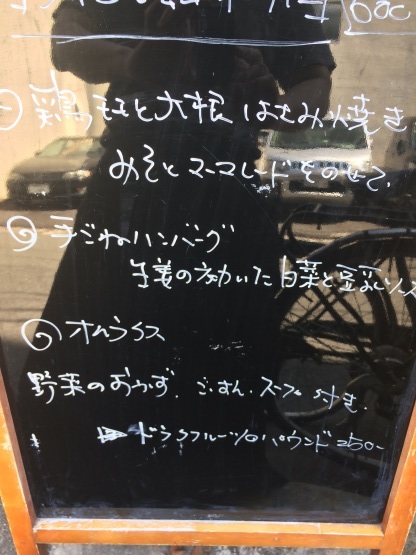 鶏ももと大根 はさみ焼き
みそとマーマレードをのせて、
手ごねハンバーグ
生姜の効いた白菜と豆乳ソース
オムライス
野菜のおかず、ごはん、スープ付き、
ドライフルーツのパウンド 250-